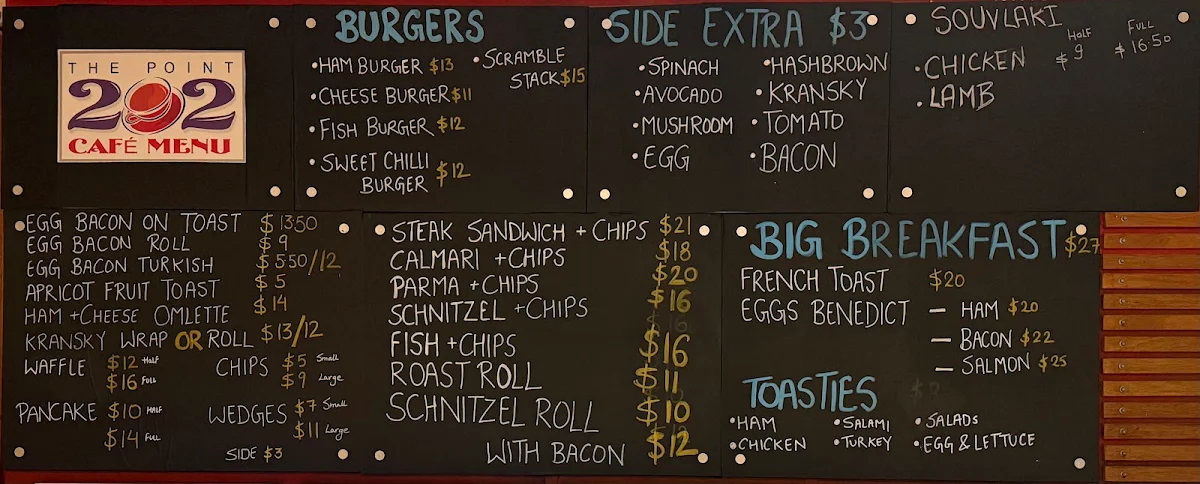 THE POINT
202
CAFÉ MENU
BURGERS
•HAM BURGER $13
•CHEESE BURGER $11
•FISH BURGER $12
•SWEET CHILLI
BURGER $12
•SCRAMBLE
STACK $15
SIDE EXTRA $3
•SPINACH
•AVOCADO
•MUSHROOM
•EGG
•HASHBROWN
•KRANSKY
•TOMATO
•BACON
SOUVLAKI
Half Full
•CHICKEN $9 $16.50
•LAMB
EGG BACON ON TOAST $13.50
EGG BACON ROLL $9
EGG BACON TURKISH $5.50/12
APRICOT FRUIT TOAST $5
HAM +CHEESE OMLETTE $14
KRANSKY WRAP OR ROLL $13/12
WAFFLE $12 Half
$16 Full
CHIPS $5 Small
$9 Large
PANCAKE $10 HALF
$14 Full
WEDGES $7 Small
$11 Large
SIDE $3
STEAK SANDWICH + CHIPS $21
CALMARI +CHIPS $18
PARMA +CHIPS $20
SCHNITZEL +CHIPS $16
FISH +CHIPS $16
ROAST ROLL $11
SCHNITZEL ROLL $10
WITH BACON $12
BIG BREAKFAST $27
FRENCH TOAST $20
EGGS BENEDICT — HAM $20
— BACON $22
— SALMON $25
TOASTIES
•HAM •SALAMI •SALADS
•CHICKEN •TURKEY •EGG & LETTUCE